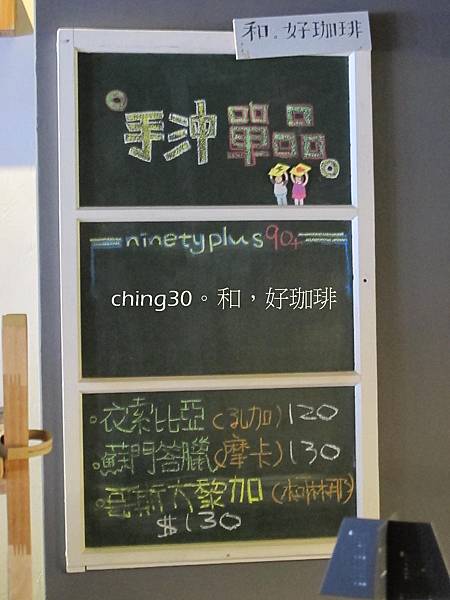 和。好珈琲
手沖單品
ninetyplus 90+
ching30。和，好珈琲
衣索比亞(孔加)120
蘇門答臘(摩卡)130
哥斯大黎加(柯林那)
$130